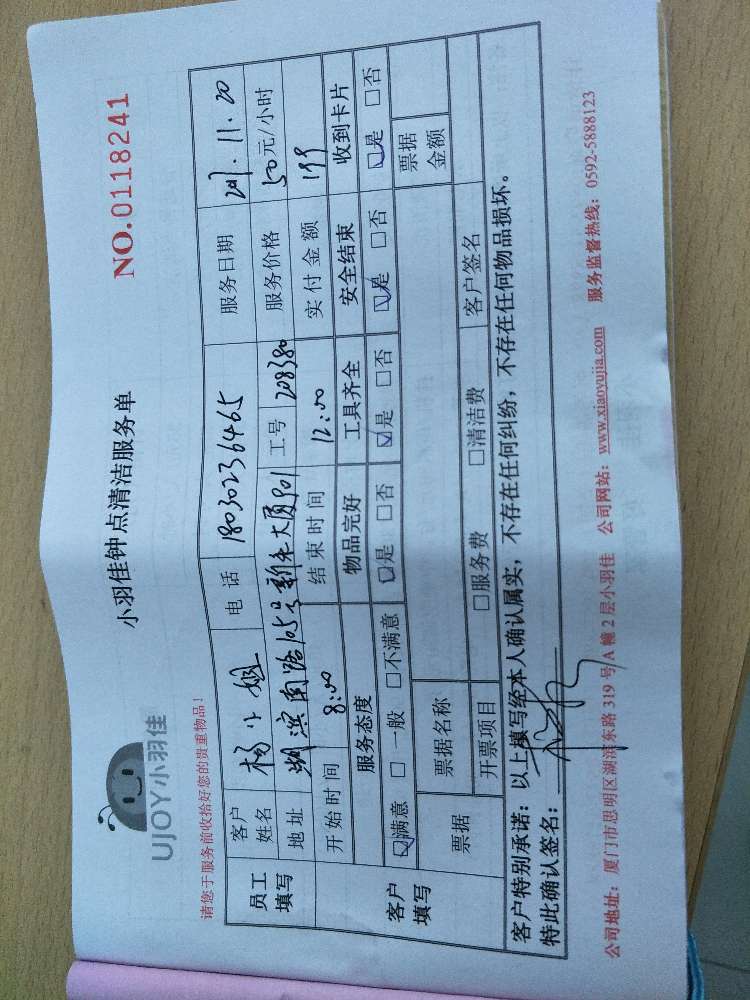 小羽佳钟点清洁服务单
NO.0118241
UJOY小羽佳
请您于服务前收拾好您的贵重物品！
员工填写 客户姓名 杨小姐 电话 18030236465 服务日期 11.20
地址 湖滨南路 工号 208380 服务价格 50元/小时
开始时间 8:00 结束时间 12:00 实付金额 199
客户填写 服务态度 物品完好 工具齐全 安全结束 收到卡片
☑满意 □一般 □不满意 ☑是 □否 ☑是 □否 ☑是 □否 ☑是 □否
票据 票据名称 票据金额
开票项目 □服务费 □清洁费 客户签名
客户特别承诺：以上填写经本人确认属实，不存在任何纠纷，不存在任何物品损坏。
特此确认签名：
公司地址：厦门市思明区湖滨东路319号A幢2层小羽佳 公司网站：www.xiaoyujia.com 服务监督热线：0592-5888123